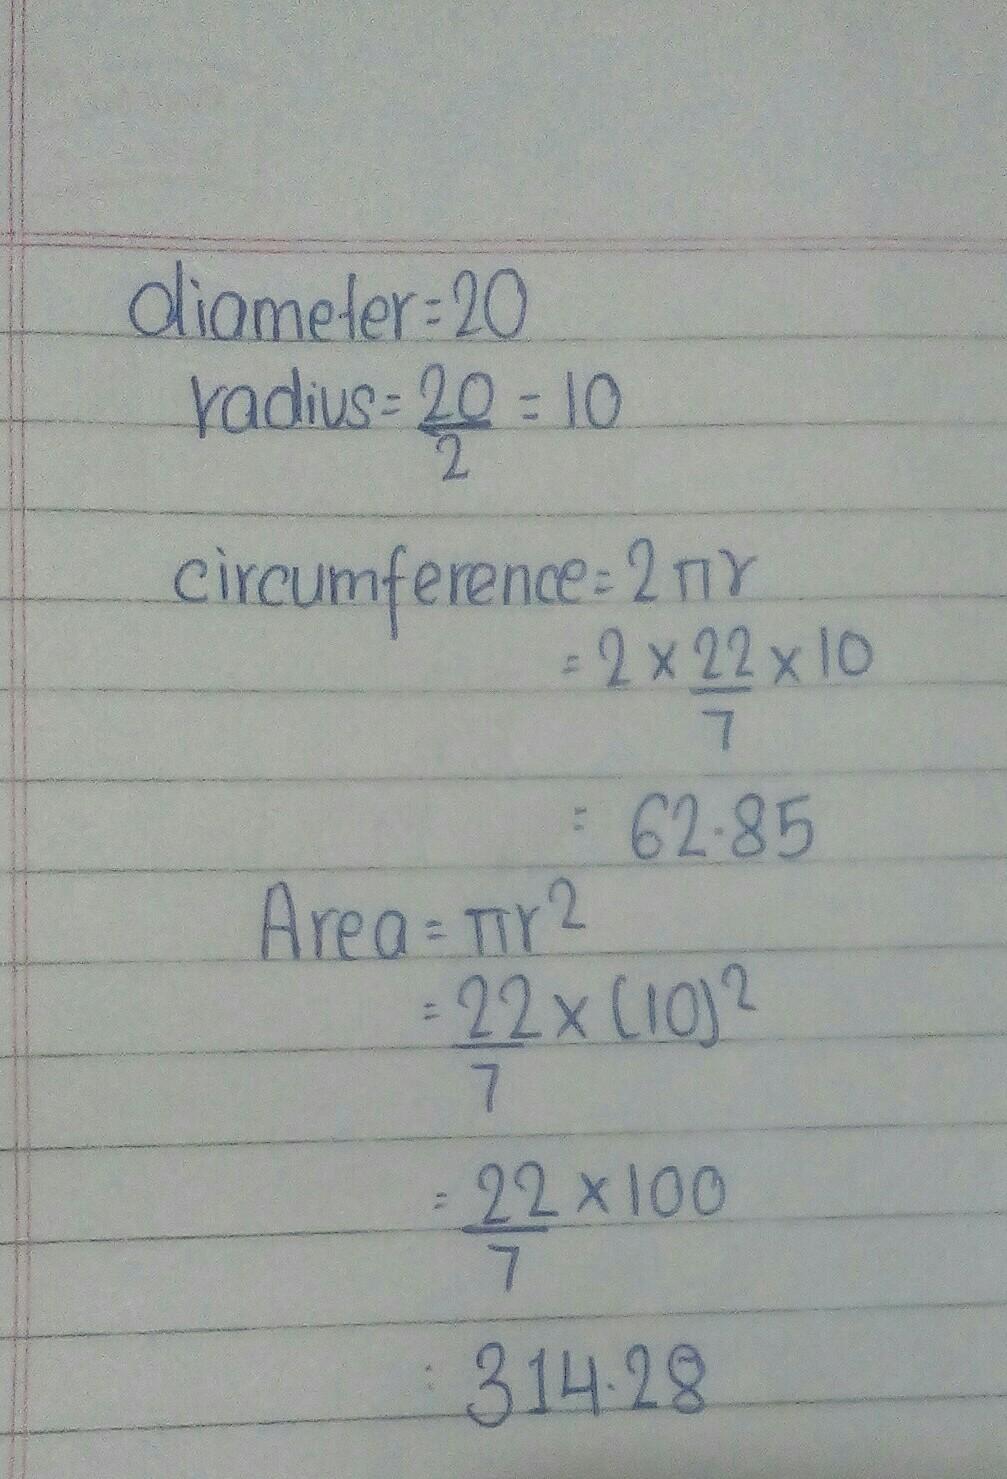 diameter=20
radius=20/2=10
circumference=2πr
=2×22/7×10
= 62.85
Area=πr²
=22/7×(10)²
=22/7×100
: 314.28